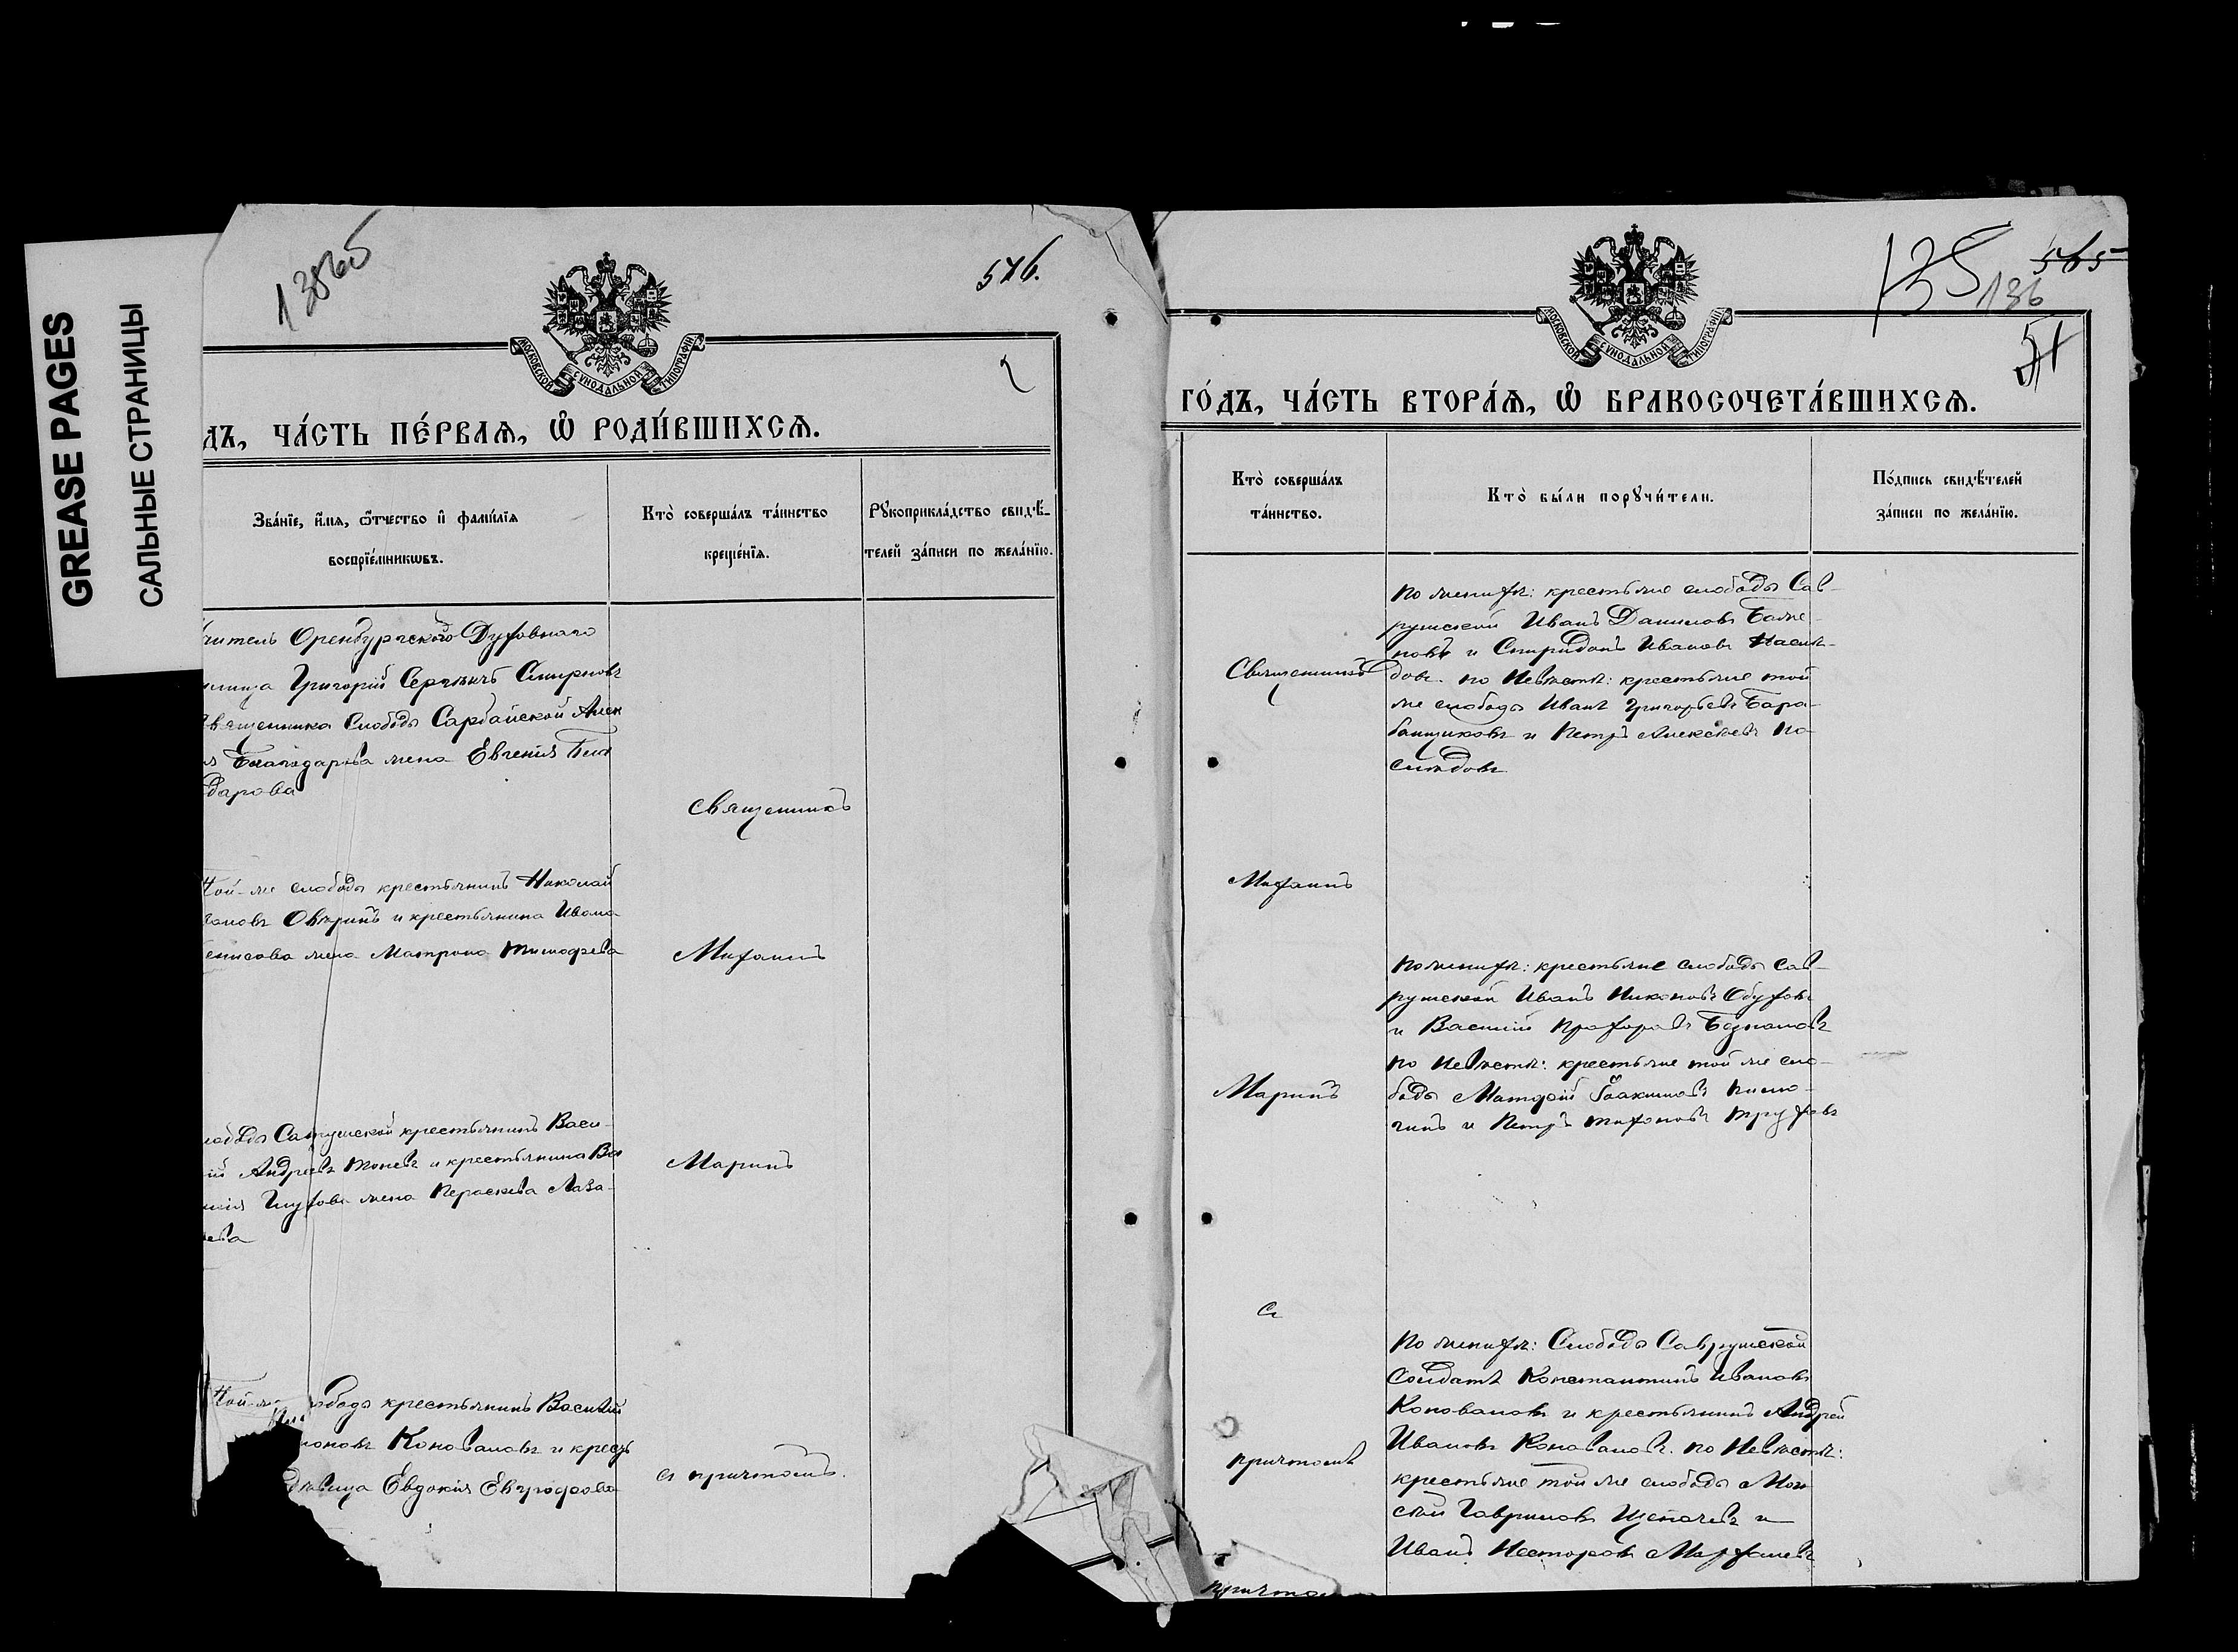 GREASE PAGES
САЛЬНЫЕ СТРАНИЦЫ
576.
МОСКОВСКОЙ СѴНОДАЛЬНОЙ ТИПОГРАФІИ
2
ДЪ, ЧА́СТЬ ПЕ́РВАѦ, Ѽ РОДИ́ВШИХСѦ.
Зва́нїе, и҆́мѧ, ѻ҆́тчество и҆ фами́лїѧ
воспрїе́мникѡвъ.
Кто̀ соверша́лъ та́инство
креще́нїѧ.
Рꙋкоприкла́дство свидѣ́-
телей за́писи по жела́нїю.
читель Оренбургскаго Духовнаго
илища Григорій Сергѣевичъ Смирновъ
священника Слободы Сарбайской Алек
Благодарова жена Евгенія Благ
дарова
Священникъ
Той-же слободы крестьянинъ Николай
Овѣринъ и крестьянина Ивана
енисова жена Матрона Тимофеева
Михаилъ
лободы Саврушской крестьянинъ Васи-
ій Андреевъ Тоневъ и крестьянина Ва
илія Глухова жена Пераскева Лаза-
ева
Маринъ
Той-же слободы крестьянинъ Василій
Коноваловъ и крест
дѣвица Евдокія Евграфова
съ причтомъ.
135
565
136
51
МОСКОВСКОЙ СѴНОДАЛЬНОЙ ТИПОГРАФІИ
ГО́ДЪ, ЧА́СТЬ ВТОРА́Ѧ, Ѽ БРАКОСОЧЕТА́ВШИХСѦ.
Кто̀ соверша́лъ
та́инство.
Кто̀ бы́ли порꙋчи́тели.
По́дпись свидѣ́телей
за́писи по жела́нїю.
По женихѣ: крестьяне слободы Сав-
рушской Иванъ Даниловъ Баже-
новъ и Спиридонъ Ивановъ Наслѣ-
довъ. По Невѣстѣ: крестьяне той
же слободы Иванъ Григорьевъ Бара-
банщиковъ и Петръ Алексѣевъ На-
слѣдовъ
Священникъ
Михаилъ
По женихѣ: крестьяне слободы Сав-
рушской Иванъ Никоновъ Обуховъ
и Василій Прохоровъ
По Невѣстѣ: крестьяне той же сло-
боды Матфей Іоакимовъ
и Петръ Тихоновъ Труховъ
Маринъ
Съ
По женихѣ: Слободы Саврушской
Солдатъ Константинъ Ивановъ
Коноваловъ и крестьянинъ Андрей
Ивановъ Коноваловъ. По Невѣстѣ:
крестьяне той же слободы Мои
сей Гавриловъ Щепачевъ и
Иванъ Несторовъ
причтомъ